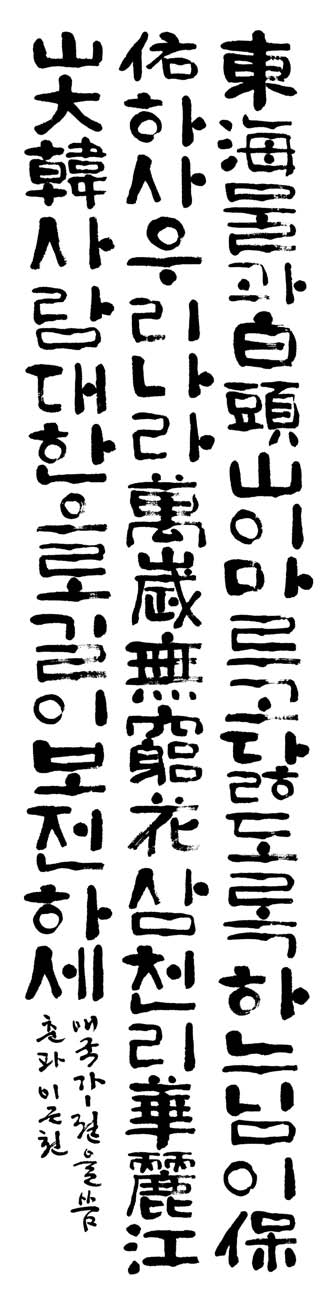 東海물과白頭山이마르고닳도록하느님이保
佑하사우리나라萬歲無窮花삼천리華麗江
山大韓사람대한으로길이보전하세
애국가 1절을 씀